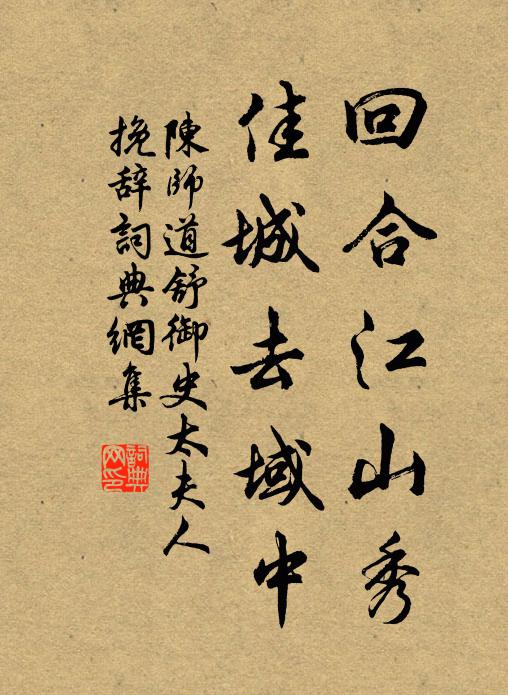 回合江山秀
佳城去域中
陳師道舒御史太夫人
挽辞詞典網集
詞典
网印